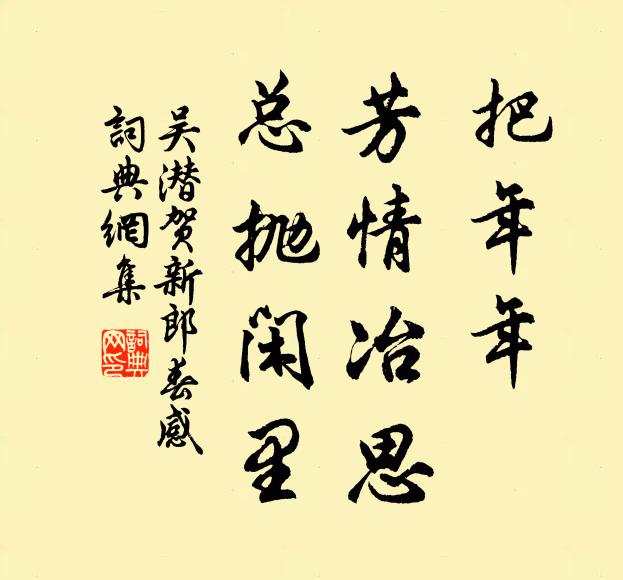 把年年
芳情冶思
总抛闲里
吴潜贺新郎春感
詞典網集
詞典网印